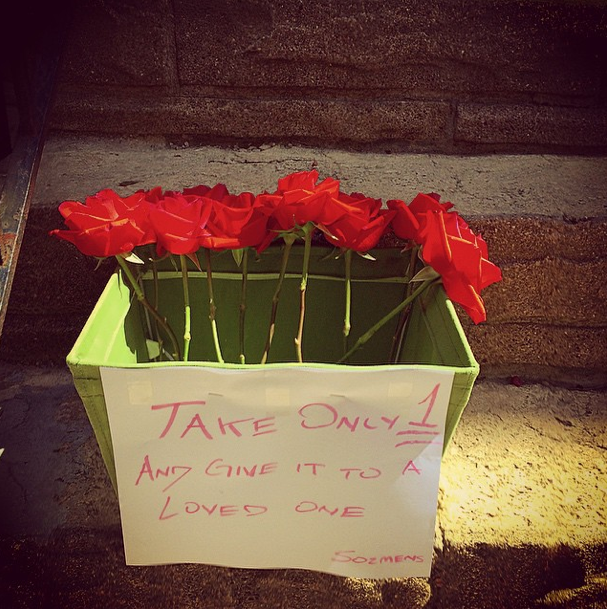 TAKE ONLY 1
AND GIVE IT TO A
LOVED ONE
SOZMENS